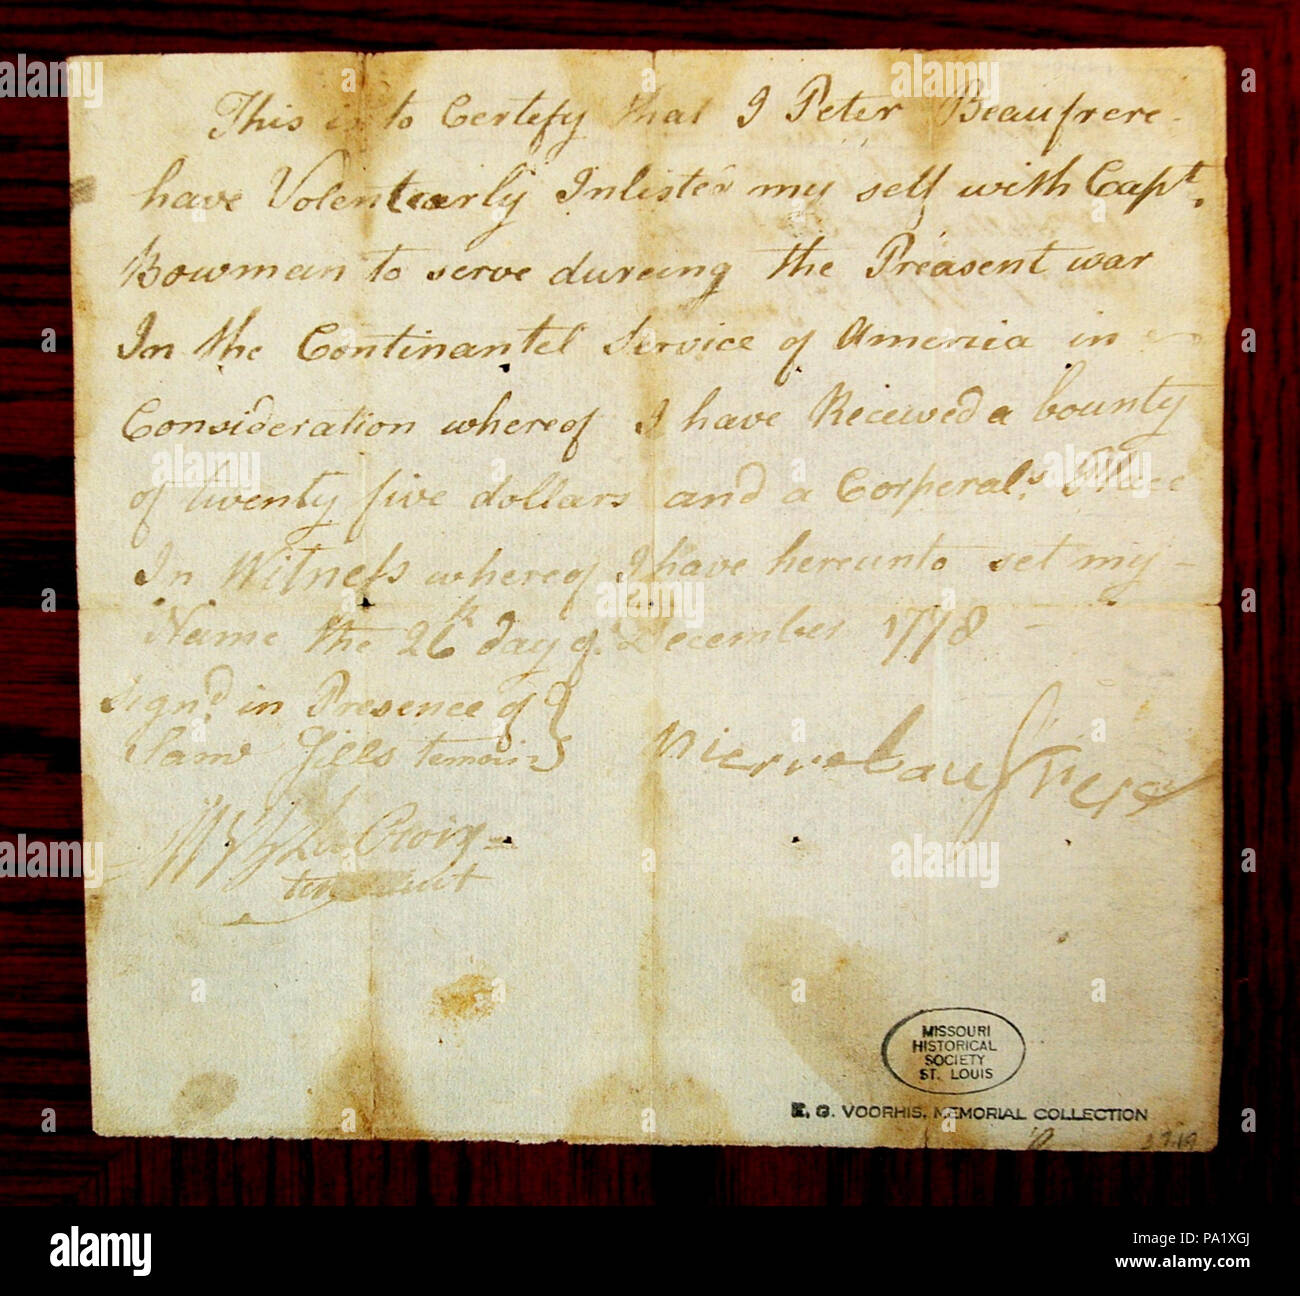 This is to Certefy that I Peter Beaufrere
have Volentearly Inlisted my self with Capt.
Bowman to serve dureing the Preasent war
In the Continantel Service of America in
Consideration whereof I have Receeved a bounty
of twenty five dollars and a Corperals Place
In Witness whereof I have hereunto set my -
Name the 26th day of December 1778 -
Signd. in Presence of
Saml Jills temoin
pierre baufrere
La Croix
MISSOURI
HISTORICAL
SOCIETY
ST. LOUIS
E. G. VOORHIS, MEMORIAL COLLECTION
alamy
Image ID: PA1XGJ
www.alamy.com